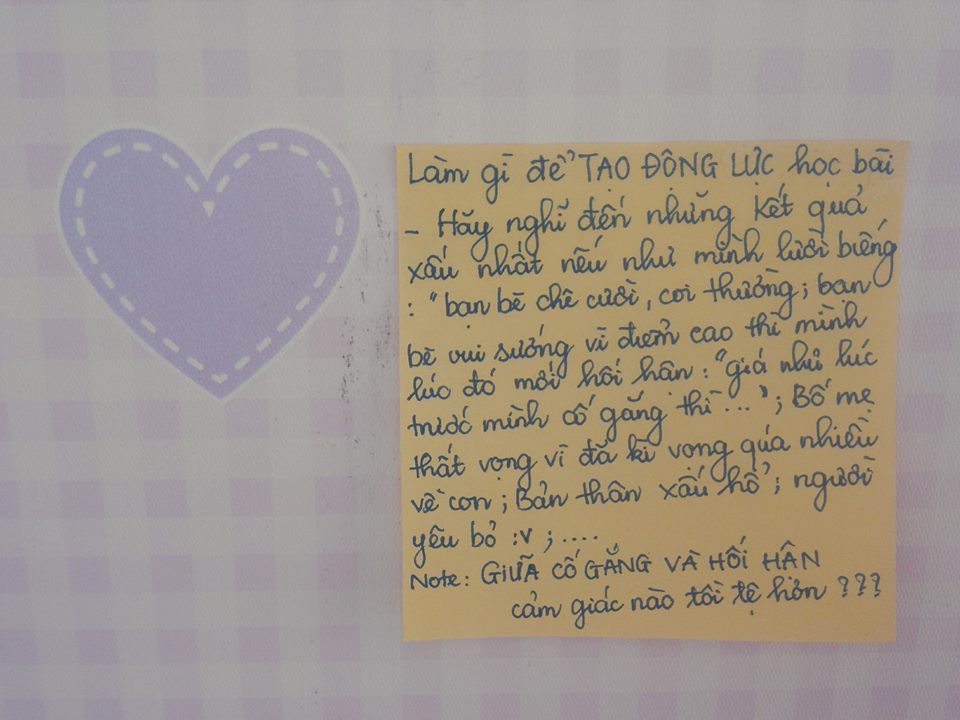 Làm gì để TẠO ĐỘNG LỰC học bài
- Hãy nghĩ đến những kết quả
xấu nhất nếu như mình lười biếng
: "bạn bè chê cười, coi thường; bạn
bè vui sướng vì điểm cao thì mình
lúc đó mới hối hận: "giá như lúc
trước mình cố gắng thì..."; Bố mẹ
thất vọng vì đã kì vọng quá nhiều
về con; Bản thân xấu hổ; người
yêu bỏ :v ;....
Note: GIỮA CỐ GẮNG VÀ HỐI HẬN
cảm giác nào tồi tệ hơn ???